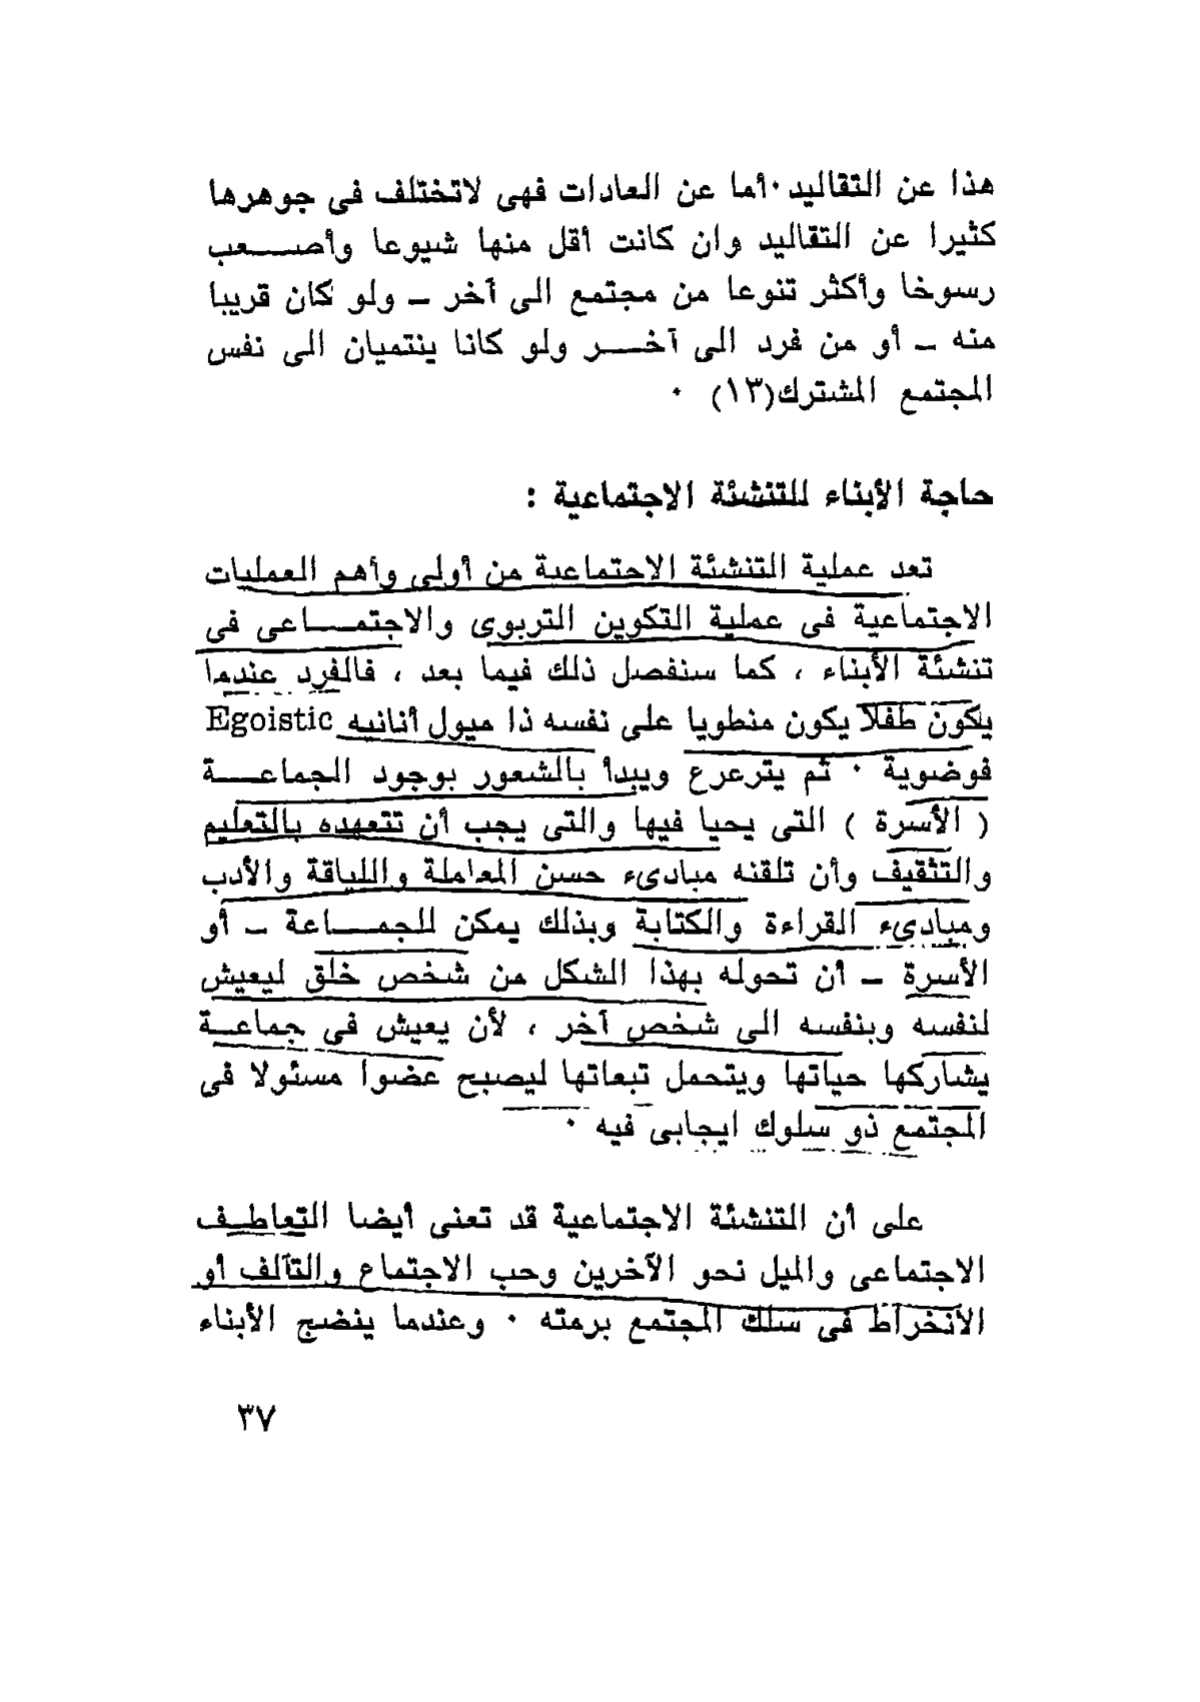 هذا عن التقاليد ٠ أما عن العادات فهى لاتختلف فى جوهرها
كثيرا عن التقاليد وان كانت أقل منها شيوعا وأصـــعب
رسوخا وأكثر تنوعا من مجتمع الى آخر ــ ولو كان قريبا
منه ــ أو من فرد الى آخـــر ولو كانا ينتميان الى نفس
المجتمع المشترك(١٣) ٠
حاجة الأبناء للتنشئة الاجتماعية :
تعد عملية التنشئة الاجتماعية من أولى وأهم العمليات
الاجتماعية فى عملية التكوين التربوى والاجتمـــاعى فى
تنشئة الأبناء ، كما سنفصل ذلك فيما بعد ، فالفرد عندما
يكون طفلا يكون منطويا على نفسه ذا ميول أنانيه Egoistic
فوضوية ٠ ثم يترعرع ويبدأ بالشعور بوجود الجماعـــة
( الأسرة ) التى يحيا فيها والتى يجب أن تتعهده بالتعليم
والتثقيف وأن تلقنه مبادىء حسن المعاملة واللياقة والأدب
ومبادىء القراءة والكتابة وبذلك يمكن للجمـــاعة ــ أو
الأسرة ــ أن تحوله بهذا الشكل من شخص خلق ليعيش
لنفسه وبنفسه الى شخص آخر ، لأن يعيش فى جماعــة
يشاركها حياتها ويتحمل تبعاتها ليصبح عضوا مسئولا فى
المجتمع ذو سلوك ايجابى فيه ٠
على أن التنشئة الاجتماعية قد تعنى أيضا التعاطـف
الاجتماعى والميل نحو الآخرين وحب الاجتماع والتآلف أو
الانخراط فى سلك المجتمع برمته ٠ وعندما ينضج الأبناء
٣٧